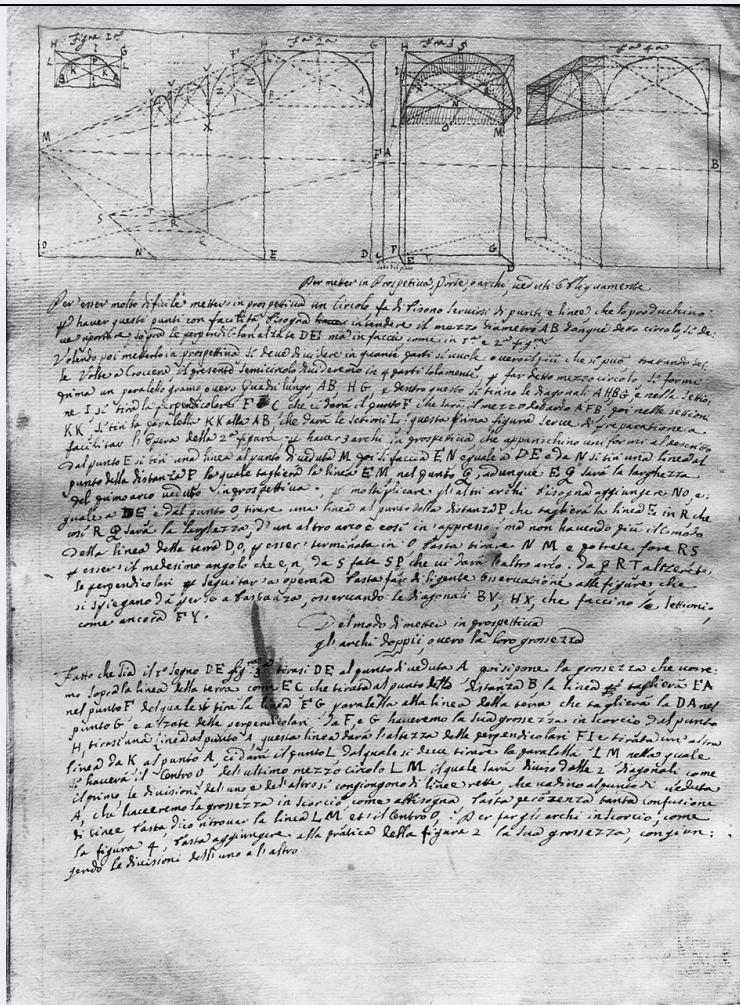 Figra 1a
H I G
L P L
K K
B A
Fra 2a
H G
V V V F
Z Z
B A
X
M
F
S T
R
Q
O N E D
Fra 3a S
H
I
N P
L O M
A
C F G
E D
Fra 4a
B
Per metter in Prospetiva, Porte, o archi, veduti obliquamente
Per esser molto dificile metter in prospettiva un Circolo, fa di bisono servirsi di punti e linee che lo produchino:
P haver questi punti con facilità bisogna intendere il mezzo diametro AB dongue detto circolo, si de:
ve sopra le perpendicolari alzate DE ma in faccia come in 1a e 2a figra
Volendo poi metterlo in prospettiva si deve dividere in quante parti si vuole overo il più che si può, tratando del:
le Volte a Crociera il presente Semicircolo divideremo in 4 parti solamente, P far detto mezzo circolo, si formi
prima un paralello gramo overo Quadrilungo AB, HG, e dentro questo si tirino le diagonali AHBG, e nella settio:
ne I si tira la perpendicolare che ci darà il punto F che sarà il mezzo del arco AFB, poi nelle settioni
KK si tiri la paralella KK alla AB, che darà le settioni L; questa prima figura serve di preparatione a
facilitar l'opera della 2a figura. P haver 3 archi in prospettiva che aparischino uniformi al descrito
dal punto E si tiri una linea al punto di veduta M poi si faccia EN equale a DE e da N si tiri una linea al
punto della distanza P la quale taglierà la linea EM nel punto Q, adunque EQ sarà la larghezza
del primo arco veduto in prospettiva. P moltiplicare gli altri archi bisogna aggiungere NO, e:
quale a DE e dal punto O, tirare una linea al punto della distanza P che taglierà la linea E in R che
così RQ sarà la larghezza, di un altro arco e così in appresso; ma non havendo più il comodo
della linea della terra DO, P esser terminata in O basta tirare NM e potrete fare RS
P esser il medesimo angolo che e, n, da S fate SP che vi darà l'altro arco. da QRT alzerete,
le perpendicolari P seguitar a operare basta far diligente osservatione alle figure che
si spiegano da per se a bastanza, osservando le diagonali BV, HX, che faccino le settioni,
come ancora FY.
Del modo di metter in prospettiva
gli archi doppii, overo la loro grossezza
Fatto che sia il 1o segno DE figra 3a tirasi DE al punto di veduta A poi si pone la grossezza che vorre:
mo sopra la linea della terra come EC che tirata al punto della distanza B la linea taglierà EA
nel punto F del quale si tira la linea FG paralella alla linea della terra che taglierà la DA nel
punto G e alzate delle perpendicolari da F e G haveremo la sua grossezza in scorcio dal punto
H, tirasi una linea al punto A questa linea darà l'altezza delle perpendicolari FI e tirata un altra
linea da K al punto A ci darà il punto L dal quale si deve tirare la paralella LM nella quale
si haverà il Centro O del ultimo mezzo circolo LM il quale sarà diviso dalle 2 diagonali come
il primo, le divisioni del uno e del altro si congiongono di linee rette che vadino al punto di veduta
A, che haveremo la grossezza in scorcio, come abbisogna. basta però senza tanta confusione
di linee basta dico ritrovar la linea LM et il Centro O, P per far gli archi in scorcio, come
la figura 4, basta aggiungere alla pratica della figura 2 la sua grossezza, congiun:
gendo le divisioni dell'uno a l'altro